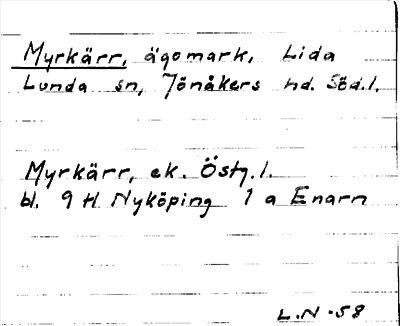 Myrkärr, ägomark, Lida
Lunda sn, Jönåkers hd. Söd.l.
Myrkärr, ek. Östg.l.
bl. 9 H Nyköping 1 a Enarn
L.N -58